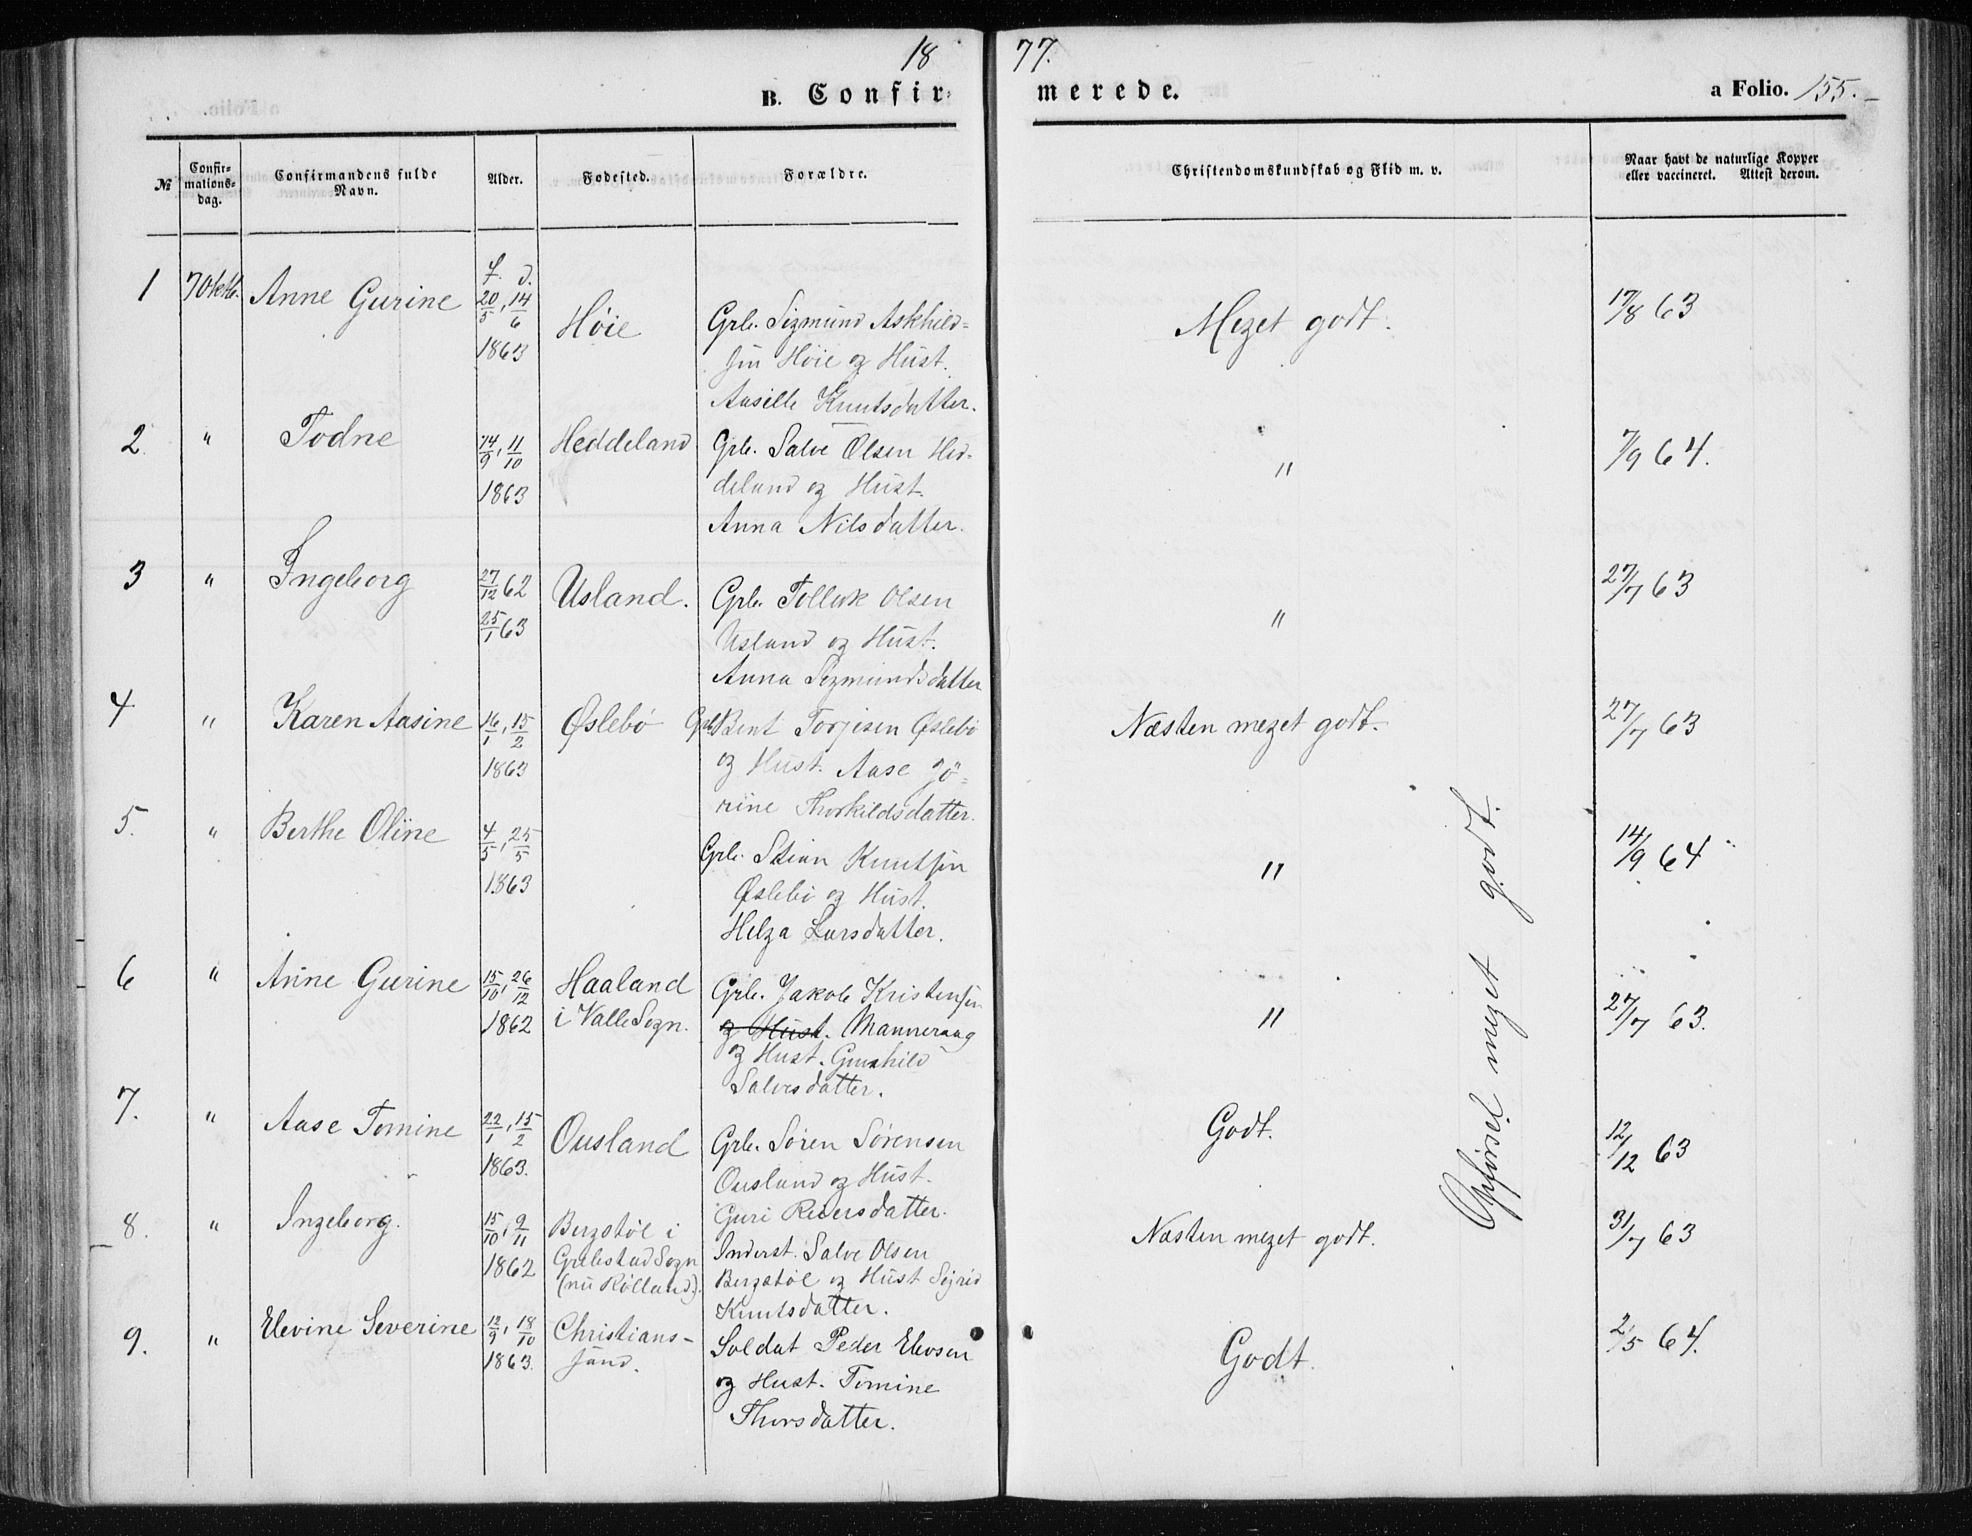 18 77.
B. Confir- merede. a Folio. 155.
№
Confir-
mations-
dag.
Confirmandens fulde
Navn.
Alder.
Fødested.
Forældre.
Christendomskundskab og Flid m. v.
Naar havt de naturlige Kopper
eller vaccineret. Attest derom.
1 7 Oktb. Anne Gurine
f. d.
20/5, 14/6
1863
Høie
Grb. Sigmund Askhild-
sen Høie og Hust.
Aasille Knutsdatter.
Meget godt.
17/8 63
2 " Todne
14/9, 11/10
1863
Heddeland
Grb. Salve Olsen Hed-
deland og Hust.
Anna Nilsdatter.
"
7/9 64.
3 " Ingeborg
27/12 62
25/1 63
Usland.
Grb. Tollek Olsen
Usland og Hust.
Anna Sigmundsdatter
"
27/7 63
4 " Karen Aasine
16/1, 15/2
1863
Øslebö
Grb. Bent Torjesen Øslebö
og Hust. Aase Jö-
rine Thorkildsdatter.
Næsten meget godt.
27/7 63
5. " Berthe Oline
4/5, 25/5
1863
Grb. Stian Knutsen
Øslebö og Hust.
Helga Larsdatter.
"
14/9 64
6 " Anne Gurine
15/10, 26/12
1862
Haaland
i Valle Sogn.
Grb. Jakob Kristensen
og Hust. Manneraag
og Hust. Gunhild
Salvesdatter.
"
27/7 63.
7. " Aase Tomine
22/1, 15/2
1863.
Ousland
Grb. Søren Sørensen
Ousland og Hust.
Guri Reiersdatter.
Godt.
12/12 63
8. " Ingeborg.
15/10, 9/11
1862
Bergstøl i
Grebestad Sogn
(nu Rølland).
Inderst. Salve Olsen
Bergstøl og Hust Sigrid
Knutsdatter.
Næsten meget godt.
31/7 63
9. " Elevine Severine
12/9, 18/10
1863.
Christians-
sand.
Soldat Peder Elevsen
og Hust. Tomine
Thorsdatter.
Godt.
2/5 64.
Opførsel meget godt.